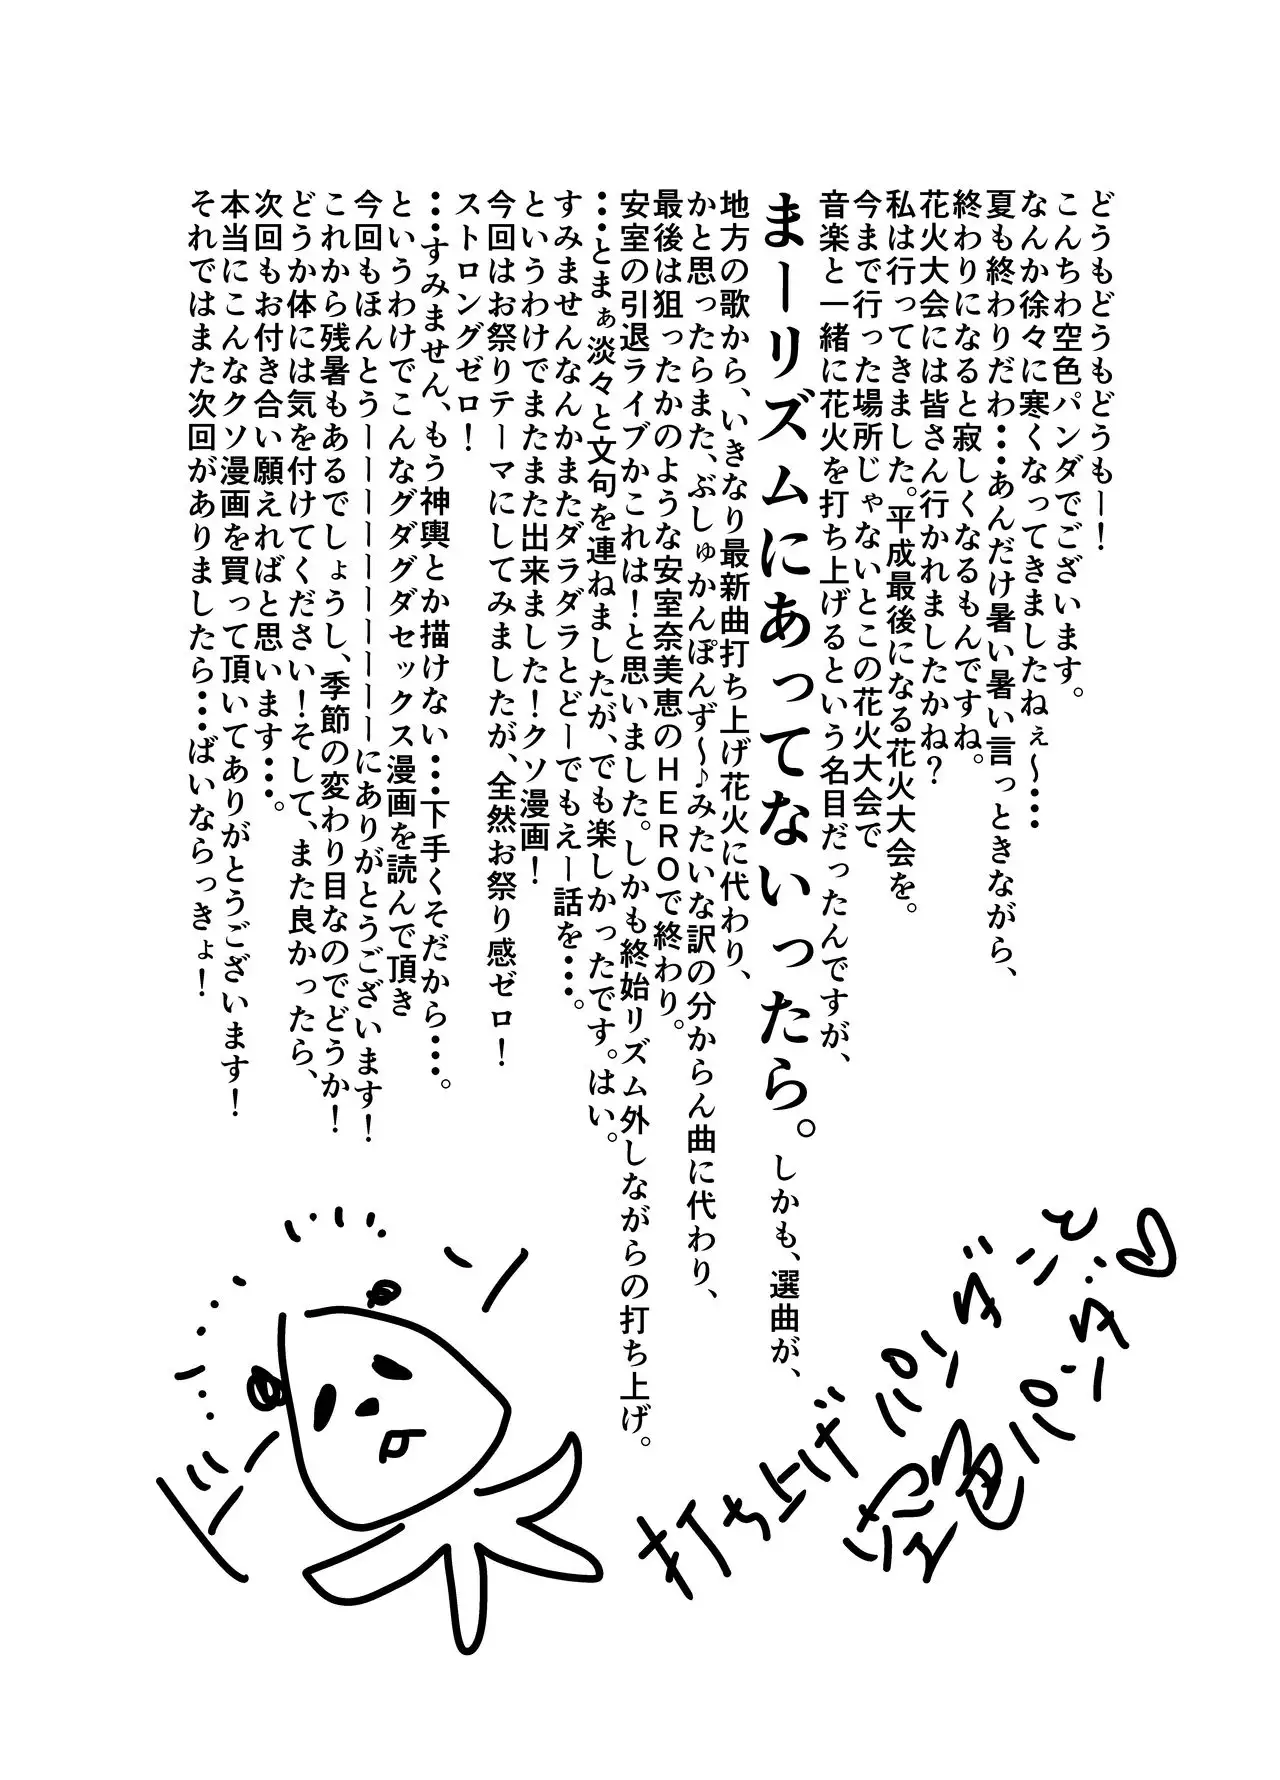 どうもどうもどうもー！
こんちわ空色パンダでございます。
なんか徐々に寒くなってきましたねぇ～・・・
夏も終わりだわ・・・あんだけ暑い暑い言っときながら、
終わりになると寂しくなるもんですね。
花火大会には皆さん行かれましたかね？
私は行ってきました。平成最後になる花火大会を。
今まで行った場所じゃないとこの花火大会で
音楽と一緒に花火を打ち上げるという名目だったんですが、
まーリズムにあってないったら。しかも、選曲が、
地方の歌から、いきなり最新曲打ち上げ花火に代わり、
かと思ったらまた、ぶしゅかんぽんず～♪みたいな訳の分からん曲に代わり、
最後は狙ったかのような安室奈美恵のＨＥＲＯで終わり。
安室の引退ライブかこれは！と思いました。しかも終始リズム外しながらの打ち上げ。
・・・とまぁ淡々と文句を連ねましたが、でも楽しかったです。はい。
すみませんなんかまたダラダラとどーでもえー話を・・・。
というわけでまたまた出来ました！クソ漫画！
今回はお祭りテーマにしてみましたが、全然お祭り感ゼロ！
ストロングゼロ！
・・・すみません、もう神輿とか描けない・・・下手くそだから・・・。
というわけでこんなグダグダセックス漫画を読んで頂き
今回もほんとうーーーーーーーーーにありがとうございます！
これから残暑もあるでしょうし、季節の変わり目なのでどうか！
どうか体には気を付けてください！そして、また良かったら、
次回もお付き合い願えればと思います・・・。
本当にこんなクソ漫画を買って頂いてありがとうございます！
それではまた次回がありましたら・・・ばいならっきょ！
打ち上げパンダこと
空色パンダ
ドーン